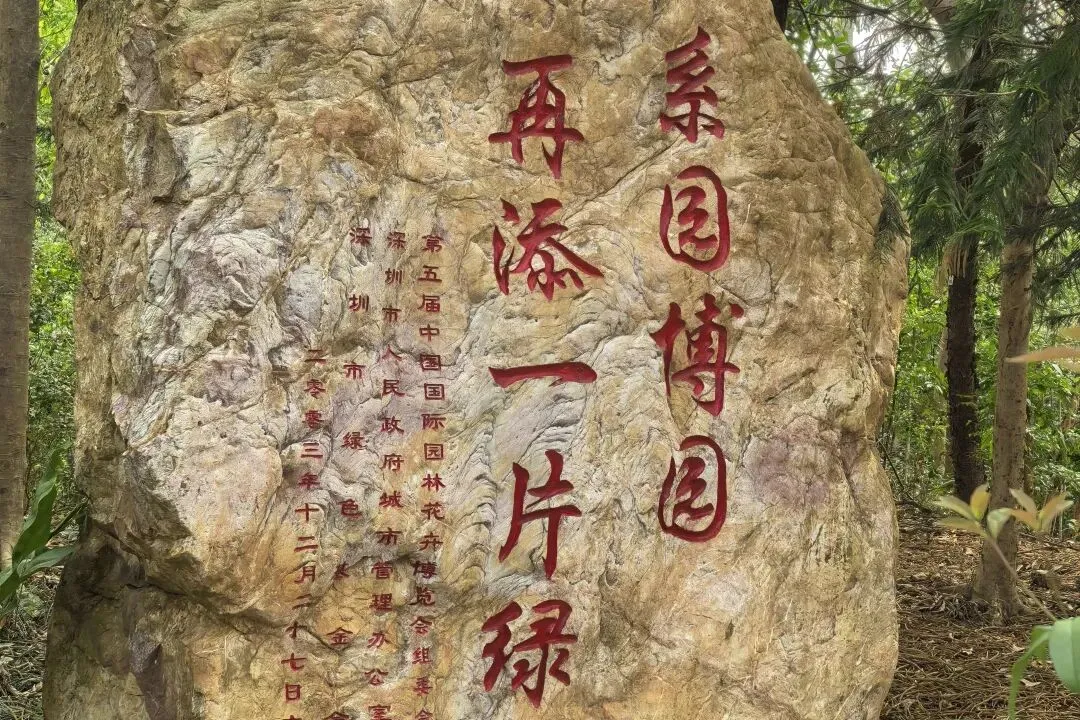 系园博园
再添一片绿
第五届中国国际园林花卉博览会组委会
深圳市人民政府城市管理办公室
深圳市绿色基金会
二零零三年十二月二十七日